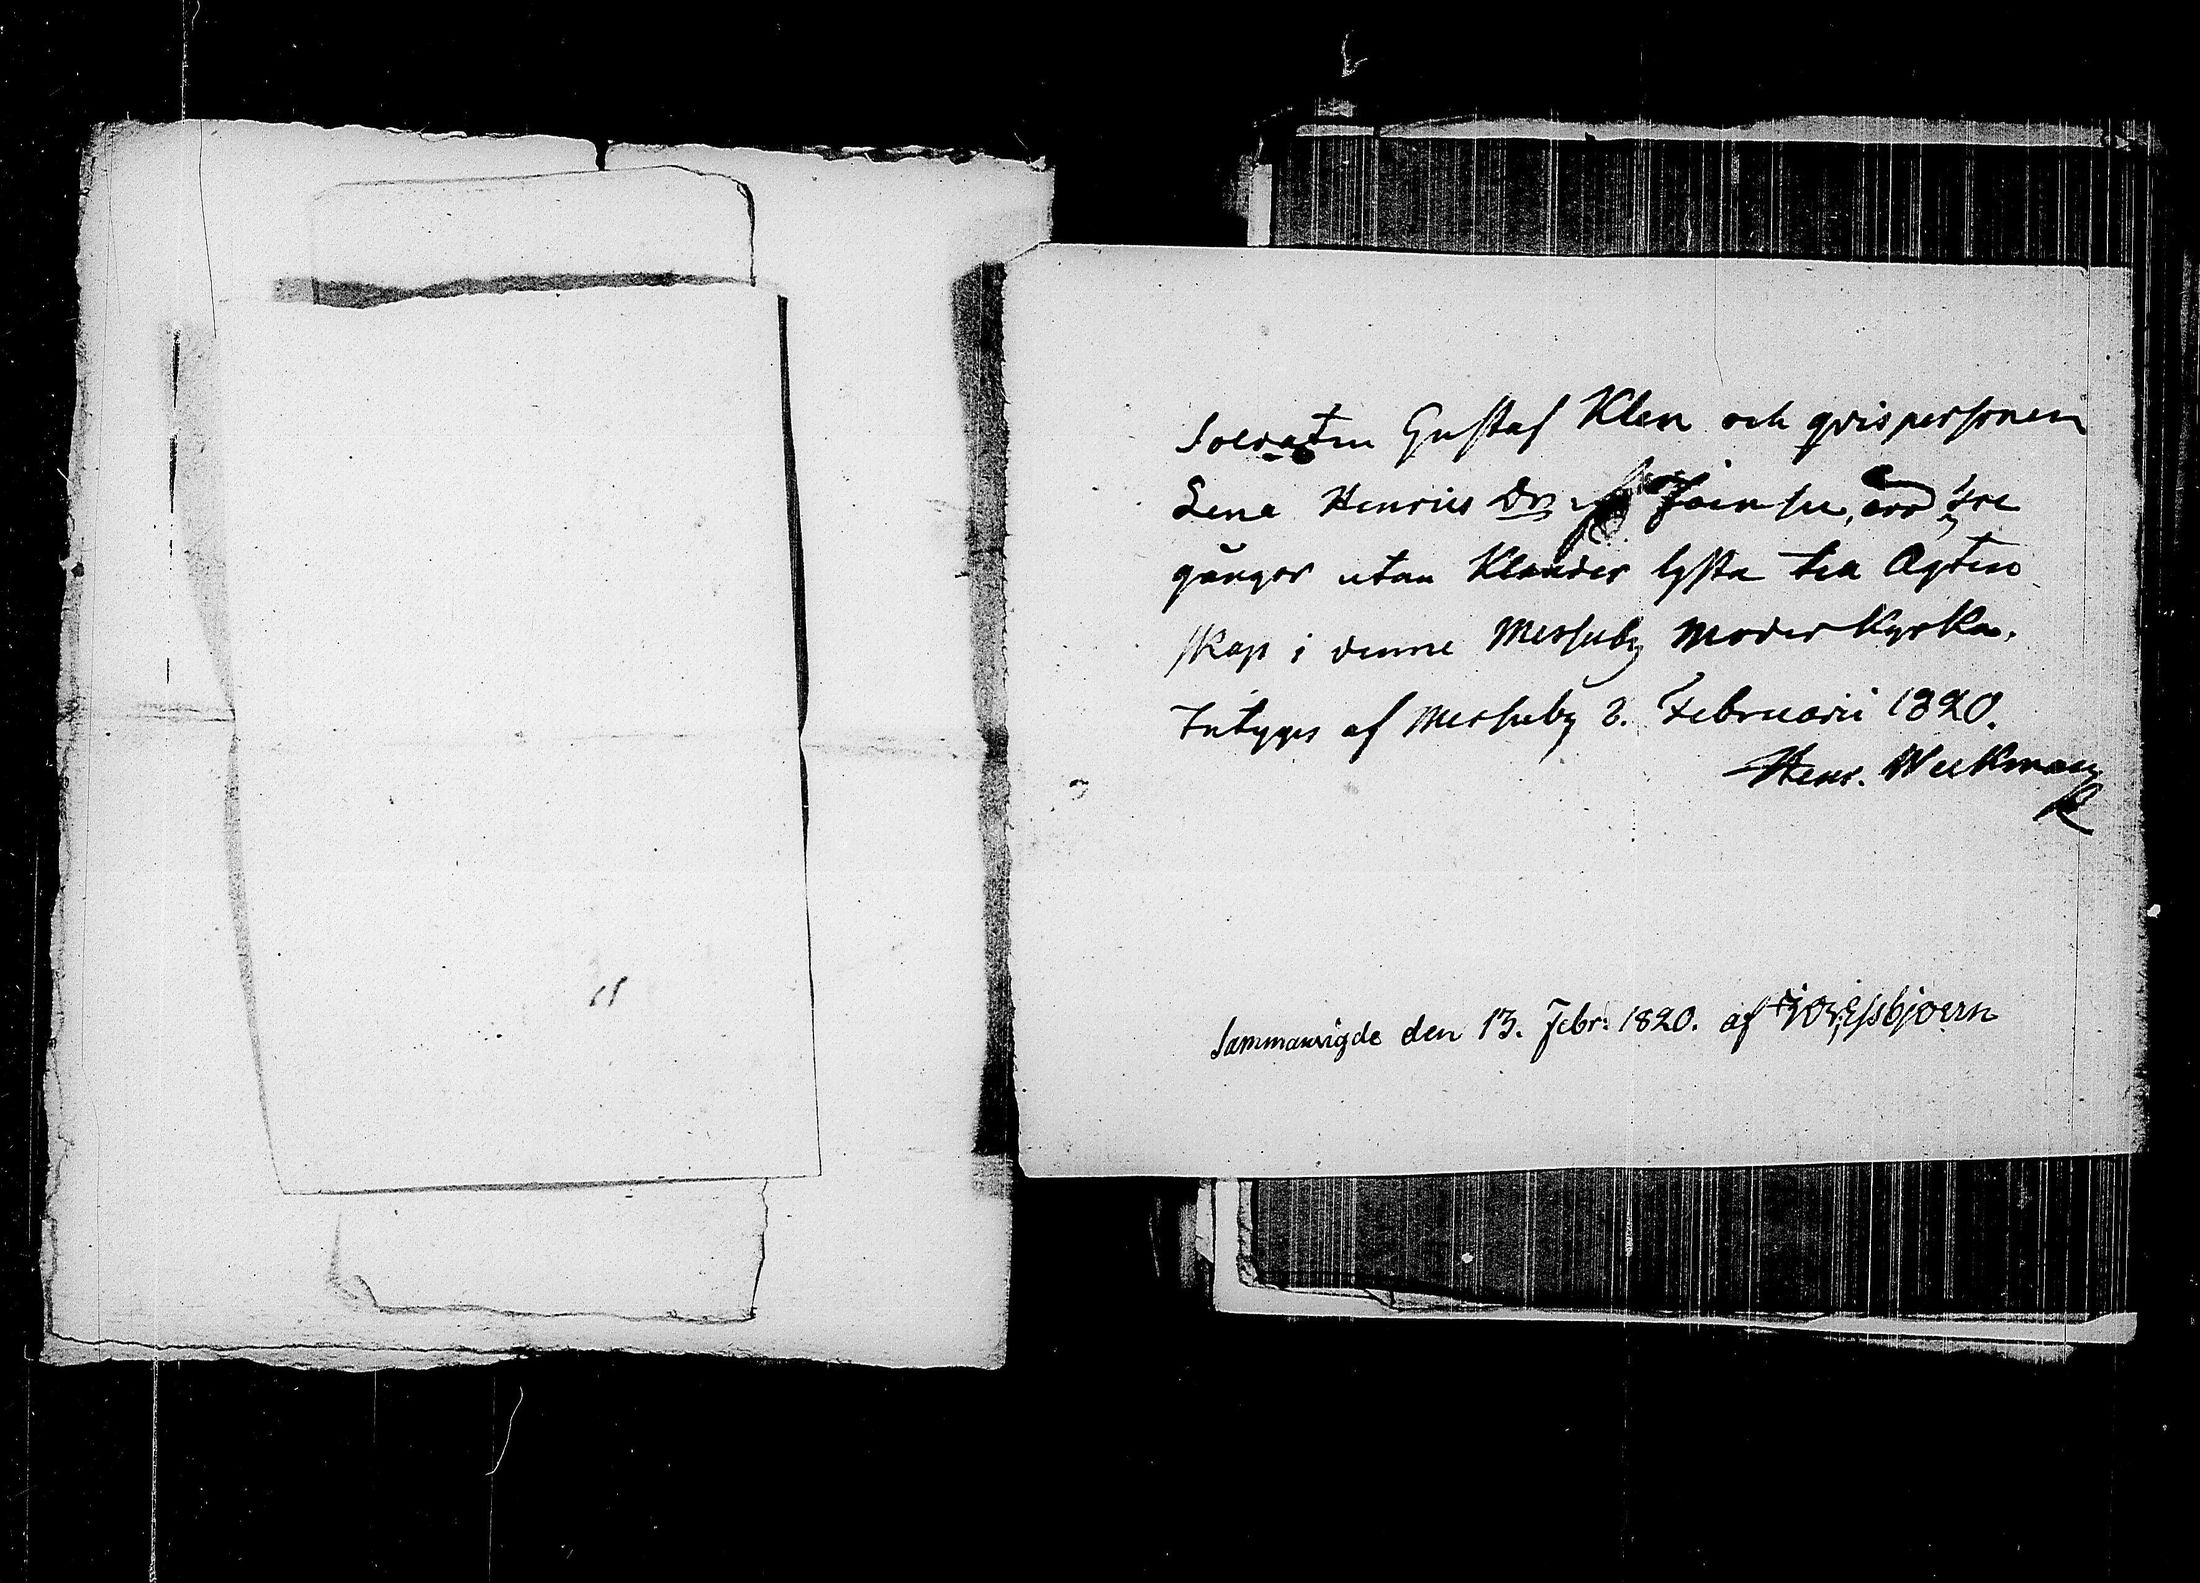 Soldaten Gustaf Klen och qvispersonen
Lena Henrics Dr Joensu, äro tre
gånger utan Klander lysta till Ägten
skap i denne Messuby Moder Kyrka.
Intyges af Messuby 8. Februarii 1820.
Henr. Weckman
Sammanvigde den 13. Febr: 1820. af